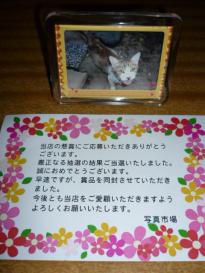 当店の懸賞にご応募いただきありがとう
ございます。
厳正なる抽選の結果ご当選いたしました。
誠におめでとうございます。
早速ですが、賞品を同封させていただき
ました。
今後とも当店をご愛顧いただきますよう
よろしくお願いいたします。
写真市場